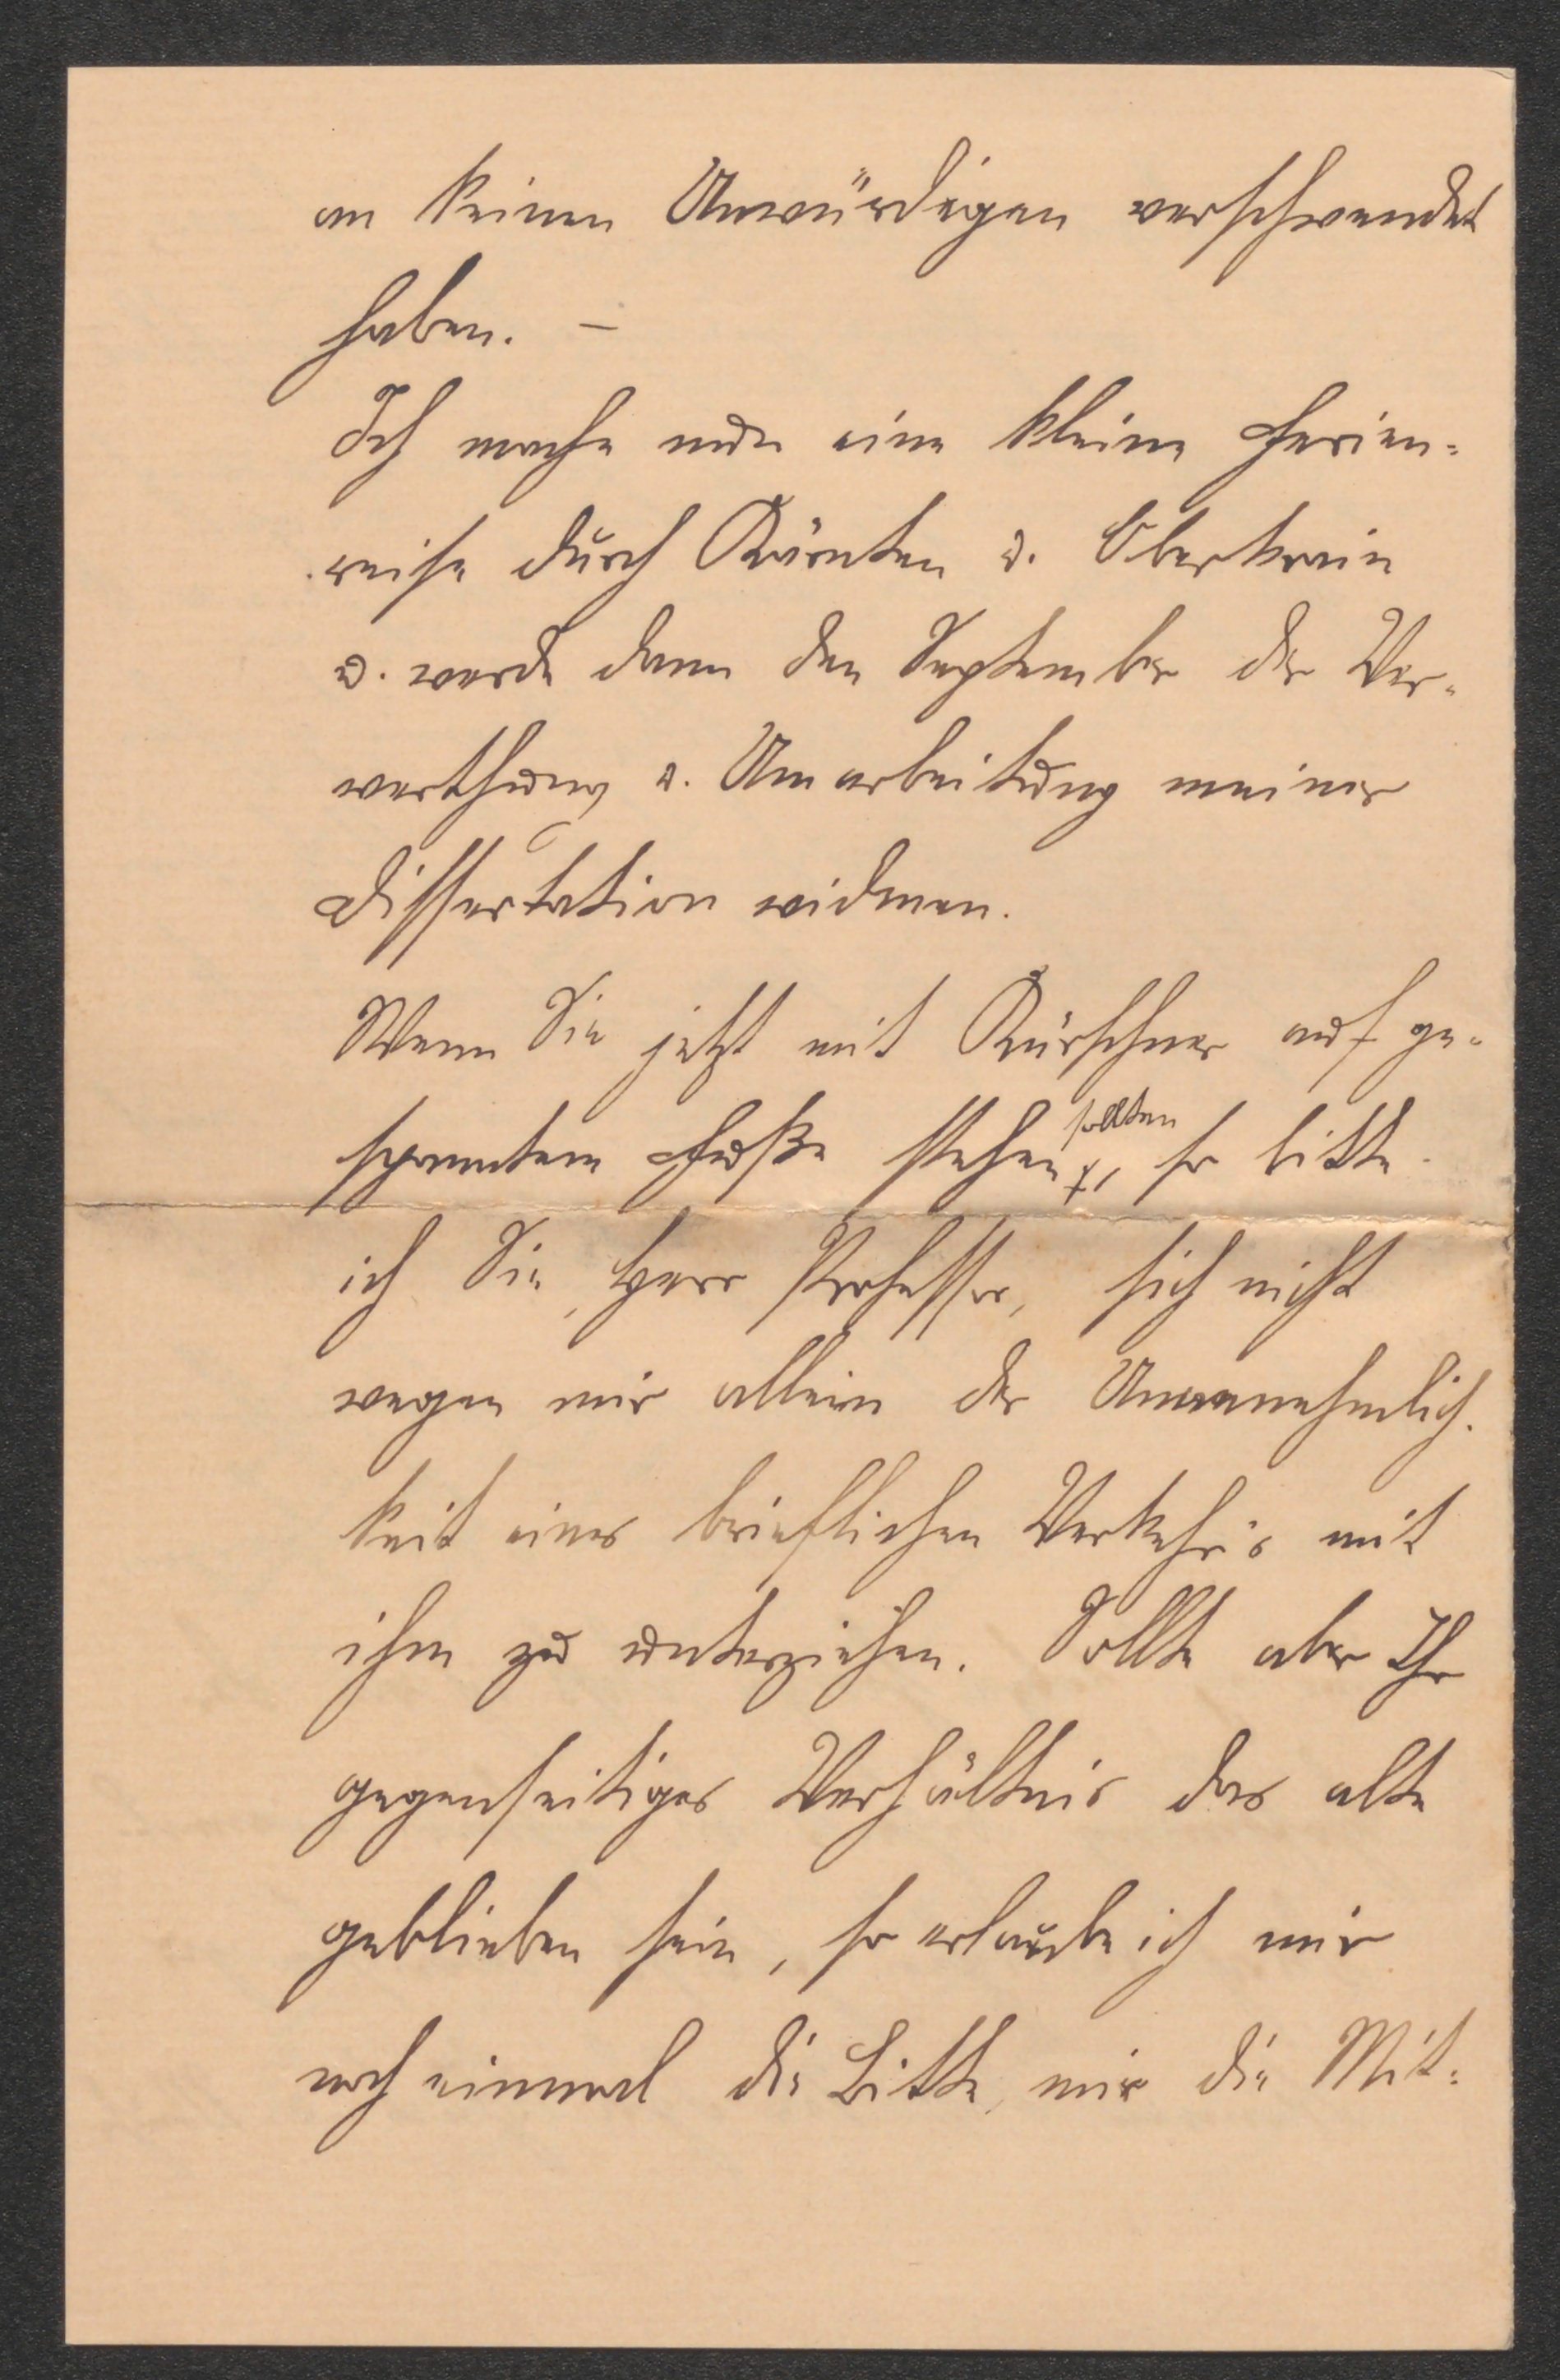 an keinen Unwürdigen verschwendet
haben. –
Ich mache nun eine kleine Ferien-
reise durch Kärnten u. Oberkrain
u. werde dann den September der Ver-
werthung u. Umarbeitung meiner
Dissertation widmen.
Wenn Sie jetzt mit Kürschner auf ge-
spanntem Fuße stehen sollten, so bitte
ich Sie, Herr Professor, sich nicht
wegen mir allein der Unannehmlich-
keit eines brieflichen Verkehr's mit
ihm zu unterziehen. Sollte aber Ihr
gegenseitiges Verhältnis das alte
geblieben sein, so erlaube ich mir
noch einmal die Bitte, mir die Mit-